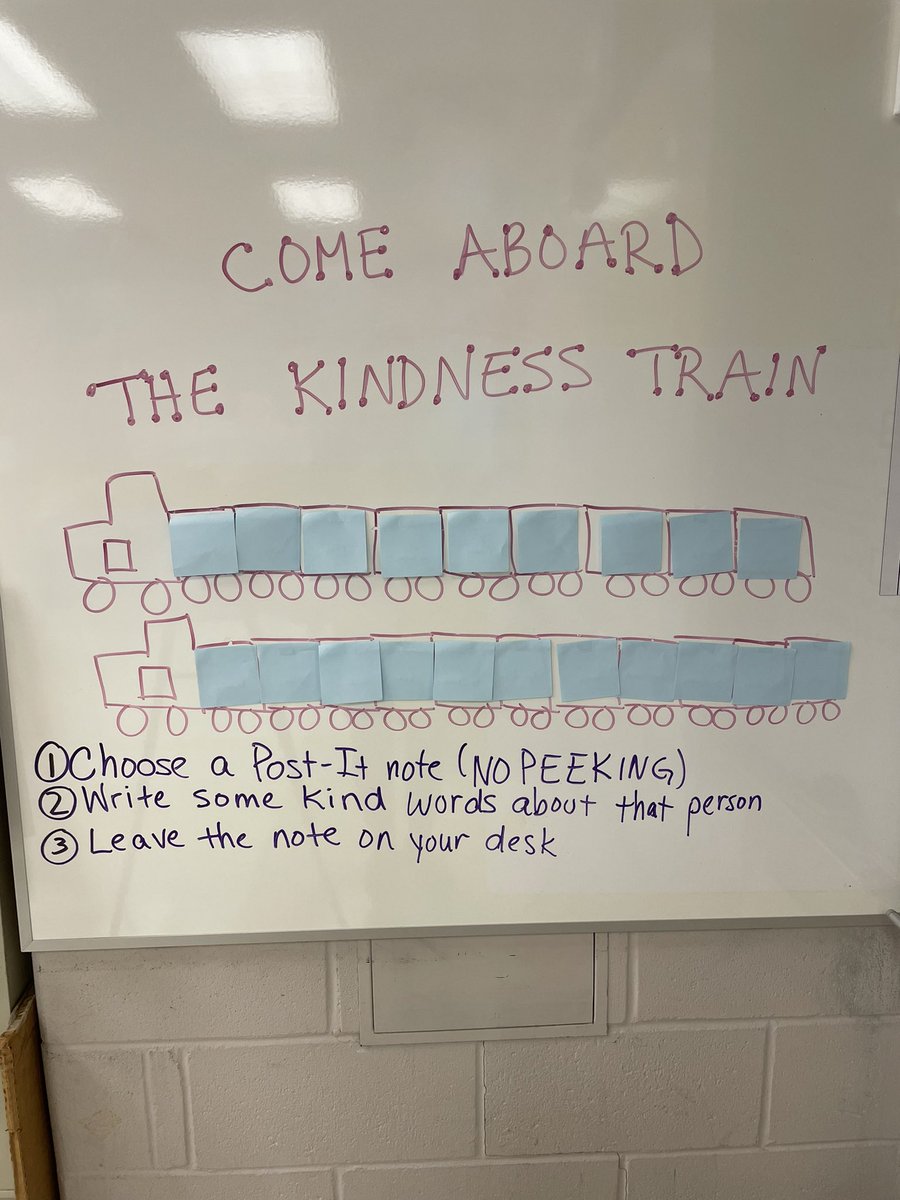 COME ABOARD
THE KINDNESS TRAIN
①Choose a Post-It note (NO PEEKING)
②Write some kind words about that person
③Leave the note on your desk